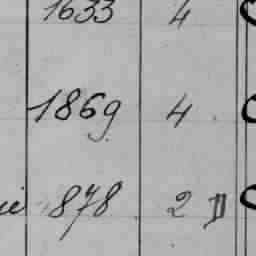 1633 4
1869. 4.
1878. 2